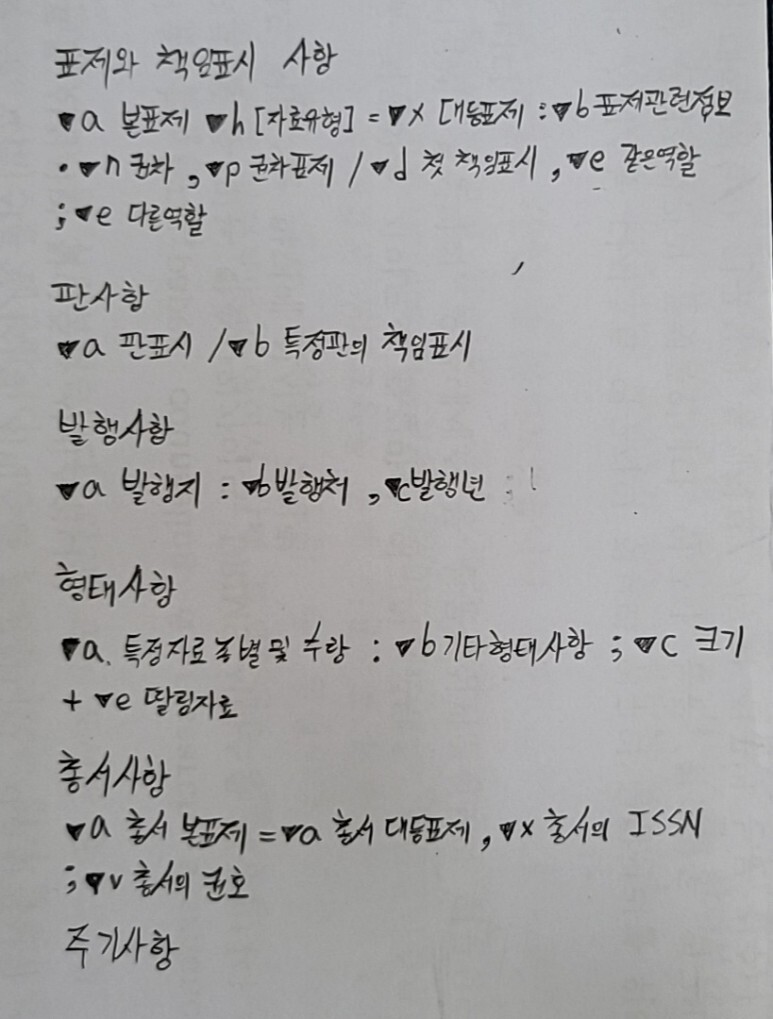 표제와 책임표시 사항
▼a 본표제 ▼h [자료유형] = ▼x [대등표제 : ▼b 표제관련정보
. ▼n 권차 , ▼p 권차표제 / ▼d 첫 책임표시 , ▼e 같은역할
; ▼e 다른역할
판사항
▼a 판표시 / ▼b 특정판의 책임표시
발행사항
▼a 발행지 : ▼b 발행처 , ▼c 발행년
형태사항
▼a. 특정자료종별 및 수량 : ▼b 기타형태사항 ; ▼c 크기
+ ▼e 딸림자료
총서사항
▼a 총서 본표제 = ▼a 총서 대등표제 , ▼x 총서의 ISSN
; ▼v 총서의 권호
주기사항